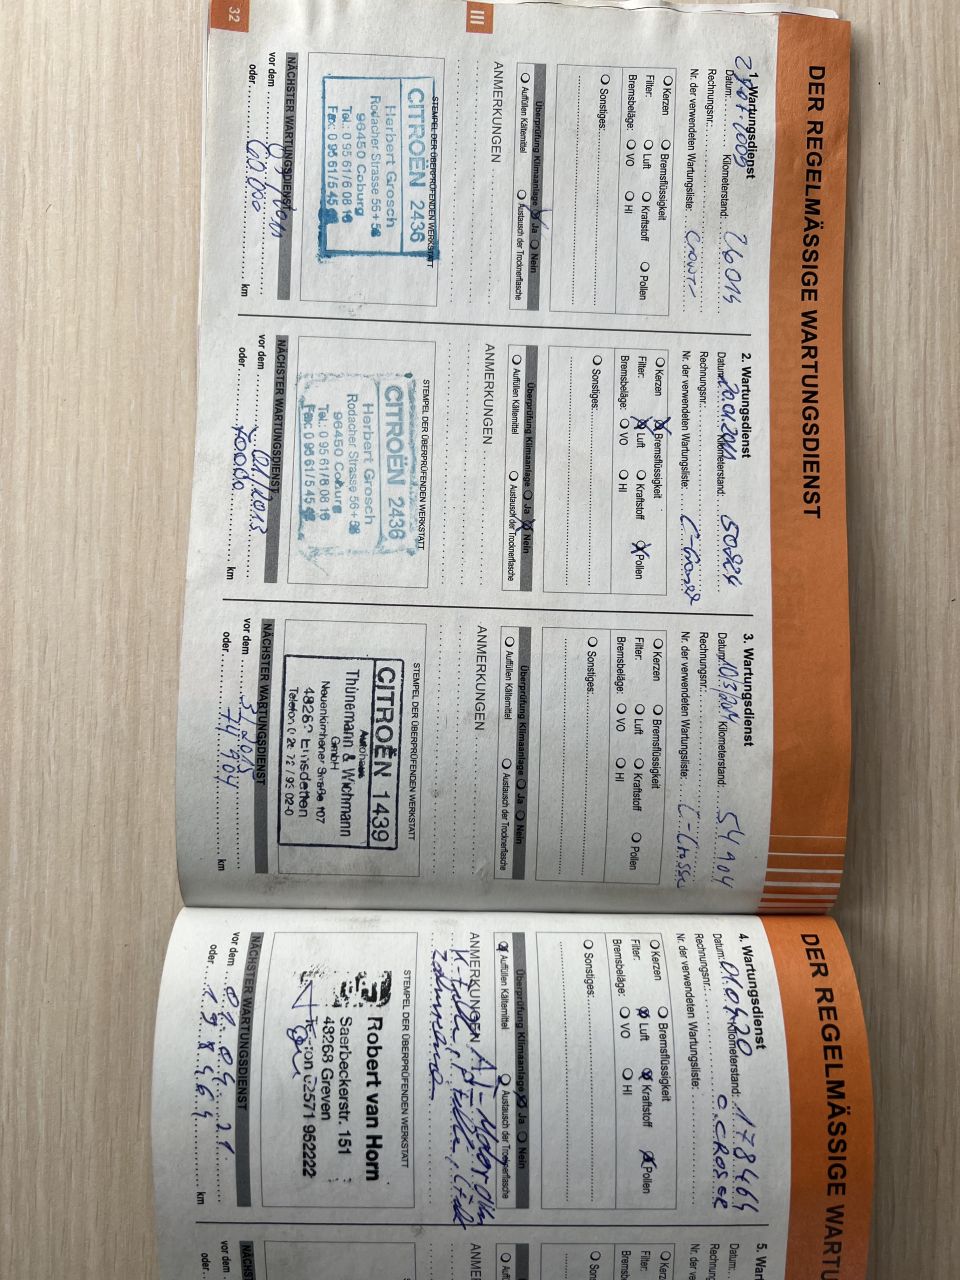 DER REGELMÄSSIGE WARTUNGSDIENST
1. Wartungsdienst
Datum: Kilometerstand: 26014
Rechnungsnr.:
Nr. der verwendeten Wartungsliste:
Kerzen Bremsflüssigkeit
Filter: Luft Kraftstoff Pollen
Bremsbeläge: VO HI
Sonstiges:
Überprüfung Klimaanlage Ja Nein
Auffüllen Kältemittel Austausch der Trocknerflasche
ANMERKUNGEN
STEMPEL DER ÜBERPRÜFENDEN WERKSTATT
CITROËN 2436
Herbert Grosch
Rodacher Strasse 56+58
96450 Coburg
Tel.: 0 95 61/6 08 16
Fax: 0 95 61/5 45
NÄCHSTER WARTUNGSDIENST
vor dem
oder 60.000 km
III
32
2. Wartungsdienst
Datum: 20.01.2011 Kilometerstand: 50824
Rechnungsnr.:
Nr. der verwendeten Wartungsliste:
Kerzen Bremsflüssigkeit
Filter: Luft Kraftstoff Pollen
Bremsbeläge: VO HI
Sonstiges:
Überprüfung Klimaanlage Ja Nein
Auffüllen Kältemittel Austausch der Trocknerflasche
ANMERKUNGEN
STEMPEL DER ÜBERPRÜFENDEN WERKSTATT
CITROËN 2436
Herbert Grosch
Rodacher Strasse 56+58
96450 Coburg
Tel.: 0 95 61/6 08 16
Fax: 0 95 61/5 45
NÄCHSTER WARTUNGSDIENST
vor dem 01/2013
oder km
3. Wartungsdienst
Datum: Kilometerstand: 54904
Rechnungsnr.:
Nr. der verwendeten Wartungsliste: C-Crosser
Kerzen Bremsflüssigkeit
Filter: Luft Kraftstoff Pollen
Bremsbeläge: VO HI
Sonstiges:
Überprüfung Klimaanlage Ja Nein
Auffüllen Kältemittel Austausch der Trocknerflasche
ANMERKUNGEN
STEMPEL DER ÜBERPRÜFENDEN WERKSTATT
CITROËN 1439
Autohaus
Thünemann & Wichmann
GmbH
Neuenkirchener Straße 107
Emsdetten
Telefon 0 25 72 / 95 02-0
NÄCHSTER WARTUNGSDIENST
vor dem 3/2013
oder 74904 km
DER REGELMÄSSIGE WARTU
4. Wartungsdienst
Datum: 01.04.20 Kilometerstand: 178464
Rechnungsnr.
Nr. der verwendeten Wartungsliste: C.CROSER
Kerzen Bremsflüssigkeit
Filter: Luft Kraftstoff Pollen
Bremsbeläge: VO HI
Sonstiges:
Überprüfung Klimaanlage Ja Nein
Auffüllen Kältemittel Austausch der Trocknerflasche
ANMERKUNGEN
Zahnriemen
STEMPEL DER ÜBERPRÜFENDEN WERKSTATT
Robert van Horn
Saerbeckerstr. 151
48268 Greven
02571 952222
NÄCHSTER WARTUNGSDIENST
vor dem 01.04.21
oder 198464 km
5. War
Datum:
Rechnungsnr
Nr. der verw
Kerz
Filter:
Bremsb
Son
ANME
NÄC
vor dem
oder